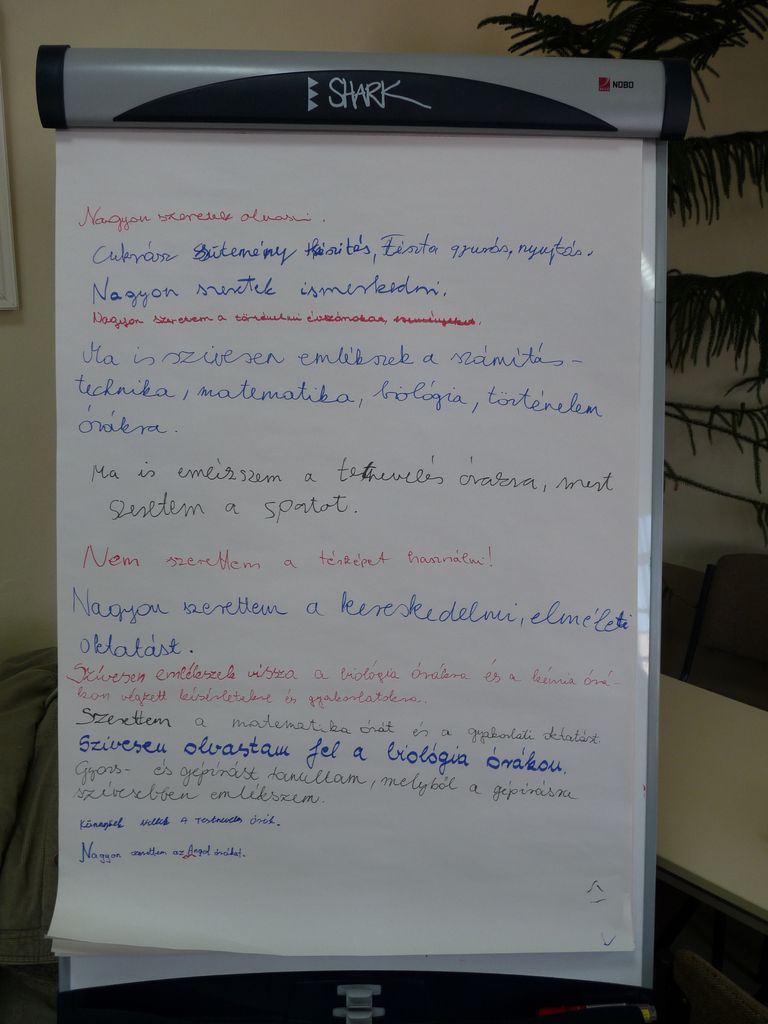 SHARK
NOBO
Nagyon szeretek olvasni.
Cukrász sütemény készítés, Tészta gyurás, nyujtás.
Nagyon szeretek ismerkedni.
Nagyon szeretem a történelmi évszámokat,
Ma is szívesen emlékszek a számítás-
technika, matematika, biológia, történelem
órákra.
Ma is emlékszem a testnevelés órákra, mert
szeretem a sportot.
Nem szerettem a térképet használni!
Nagyon szerettem a kereskedelmi, elméleti
oktatást.
Szívesen emlékszek vissza a biológia órákra és a kémia órá-
kon végzett kísérletekre és gyakorlatokra.
Szerettem a matematika órát és a gyakorlati oktatást.
Szívesen olvastam fel a biológia órákon.
Gyors- és gépírást tanultam, melyből a gépírásra
szívesebben emlékszem.
Könnyűek voltak a testnevelés órák.
Nagyon szerettem az Angol órákat.